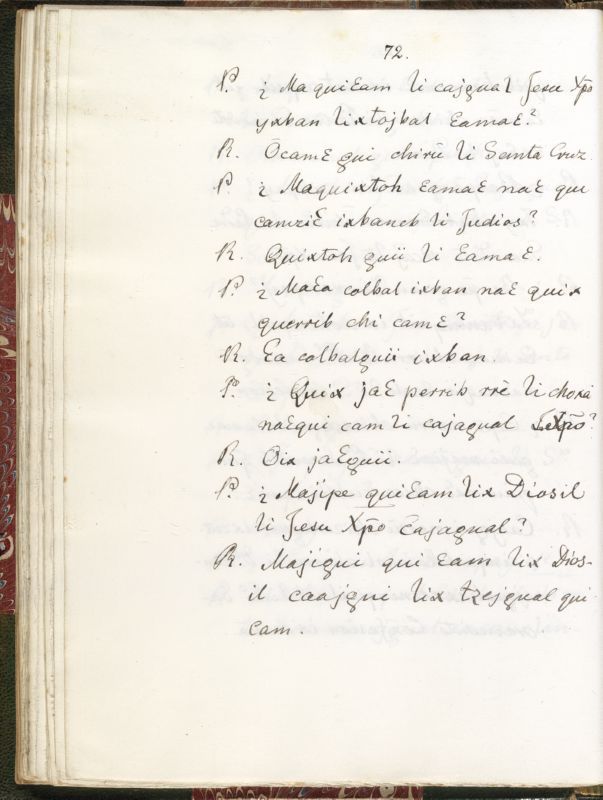 72.
P. ¿ Maquiɛam li cajgual Jesu Xp̄o
yxban lixtojbal ɛamaɛ?
R. Ōcamɛ gui chirū li Santa Cruz.
P. ¿ Maquixtoh ɛamaɛ naɛ qui
camziɛ ixbaneb li Judios?
R. Quixtoh guii li ɛamaɛ.
P. ¿ Maɛa colbal ixban naɛ quix
querrib chi camɛ?
R. ɛa colbalguii ixban.
P. ¿ Quix jaɛ perrib rrē li choxá
naɛqui cam li cajagual Xp̄o?
R. Oix jaɛguii.
P. ¿ Majipe quiɛam lix Diosil
li Jesu Xp̄o Cajagual?
R. Majigui qui ɛam lix Dios-
il caajgui lix tzejgual qui
cam.